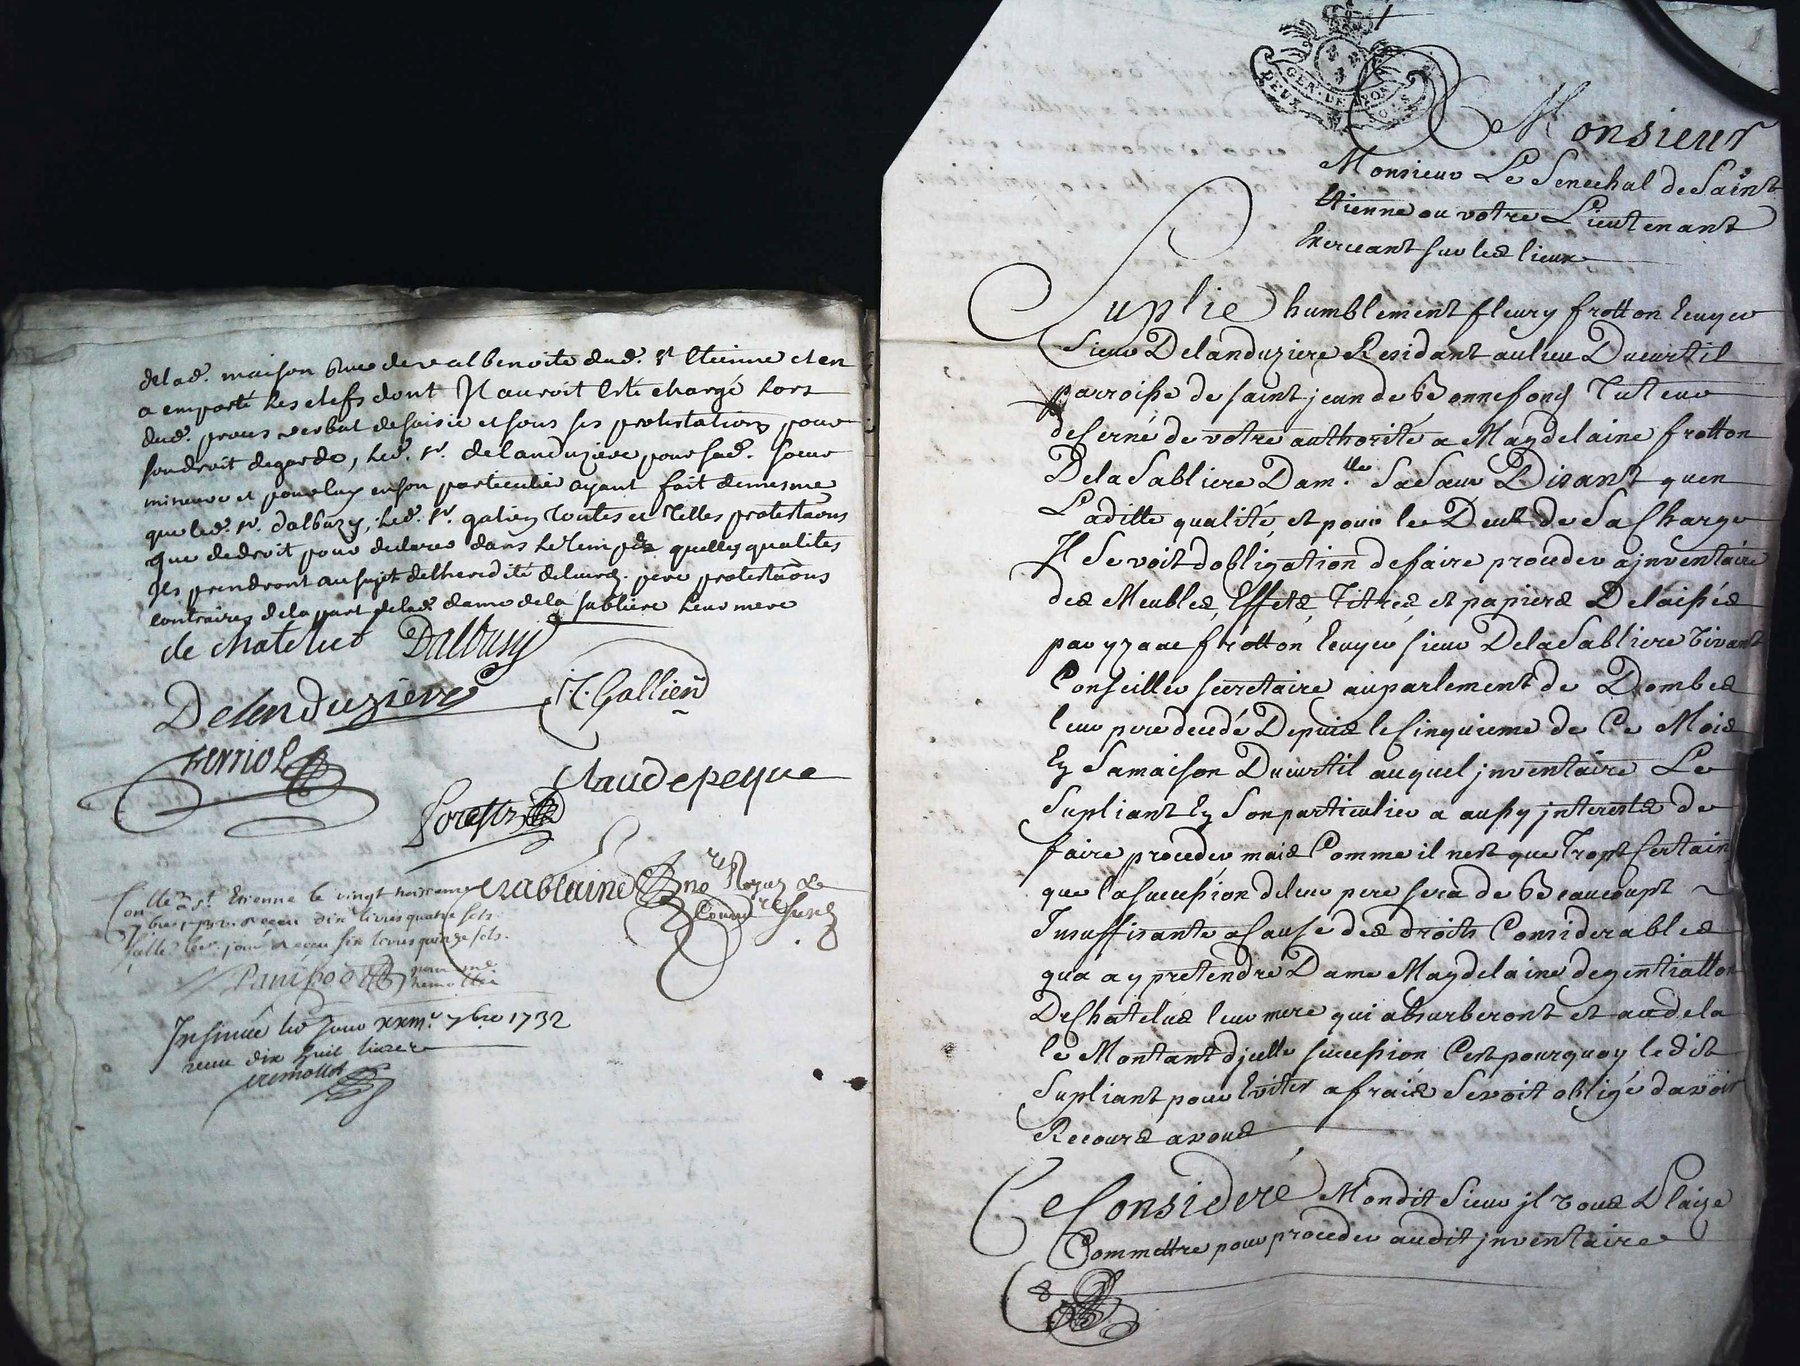 delad. maison rue de realbenoite dud. st Etienne et en
a emporté les clefs dont Il auroit Esté chargé Lors
dud. proces verbal desaisie et sous ses protestations pour
son droit de garde, led. sr. delanduziere pour sad. soeur
mineure et pour luy en son particulier ayant fait demesme
que led. sr. dalbuzy, led. sr. galien toutes et telles protestaõns
que de droit pour declarer dans le temps quelles qualites
Ils prendront au sujet delheredité deleurd. pere protestaõns
contraires dela part delad. dame dela sabliere leur mere
de chatelus Dalbusy
Delanduziere J. Gallien
Ferriol
Claudepeyre
Forestz
Crablaine
Con.llé a st. Etienne le vingt troisieme
7bre 1732 receu dix livres quatre sols
Insinué led jour xxme. 7bre 1732
receu dix huit livres
GEN. DE
DEUX SOLS
Monsieur
Monsieur Le Senechal de Saint
Etienne ou votre Lieutenant
Exercant sur les lieux
Suplie humblement fleury frotton Ecuyer
Sieur Delanduziere Residant au lieu Ducurtil
parroisse de saint jean de Bonnefong Tuteur
deserné de votre authorité a Magdelaine frotton
Dela Sabliere Dam.lle Sa Sœur Disant quen
Laditte qualité et pour le Deub de Sa Charge
Il Se voit dobligation defaire proceder ajnventaire
des Meubles, Effets, Titres et papiers Delaissés
par yzaac frotton Ecuyer sieur Dela Sabliere vivant
Conseiller secretaire auparlement de Dombes
leur pere decedé Depuis le Cinquieme de Ce Mois
En Samaison Ducurtil auquel jnventaire Le
Supliant En Sonparticulier a aussy jnterests de
faire proceder mais Comme il nest que Tropt Certain
que la succession deleur pere sera de Beaucoupt
Insuffisante a Cause des droits Considerables
qua a y pretendre Dame Magdelaine degentiatton
De Chatelus leur mere qui absurberont et audela
le Montant djcelle succession Cest pourquoy ledit
Supliant pour Eviter a frais Sevoit obligé davoir
Recours avous
Ce Consideré Mondit Sieur jl vous Plaize
Commettre pour proceder audit jnventaire